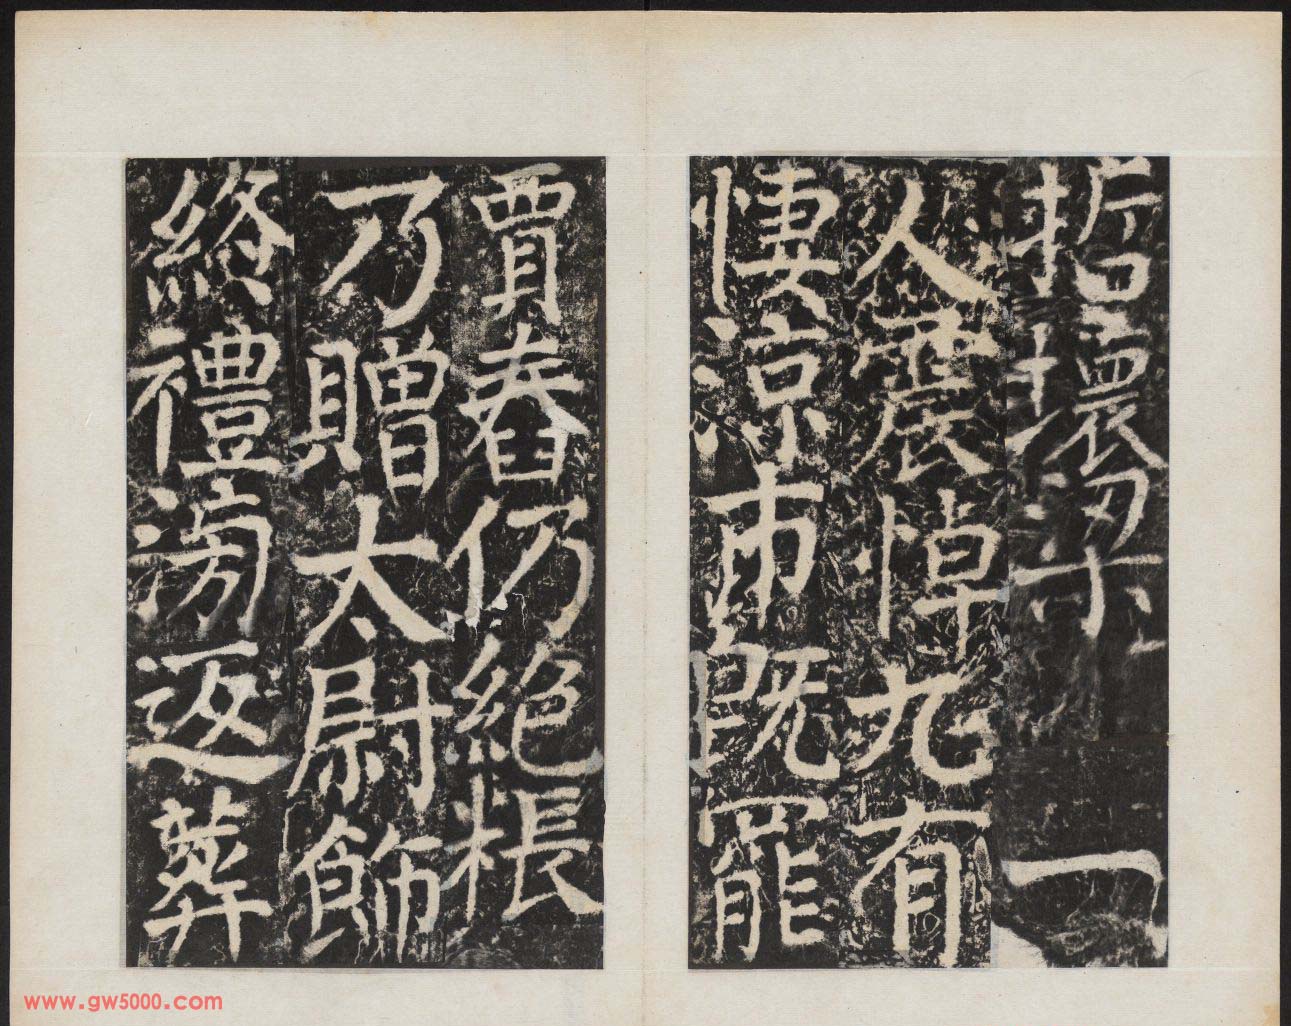 哲壞梁一
人震悼九有
悽涼市既罷
賈舂仍絕棖
乃贈太尉飾
終禮滂返葬
www.gw5000.com